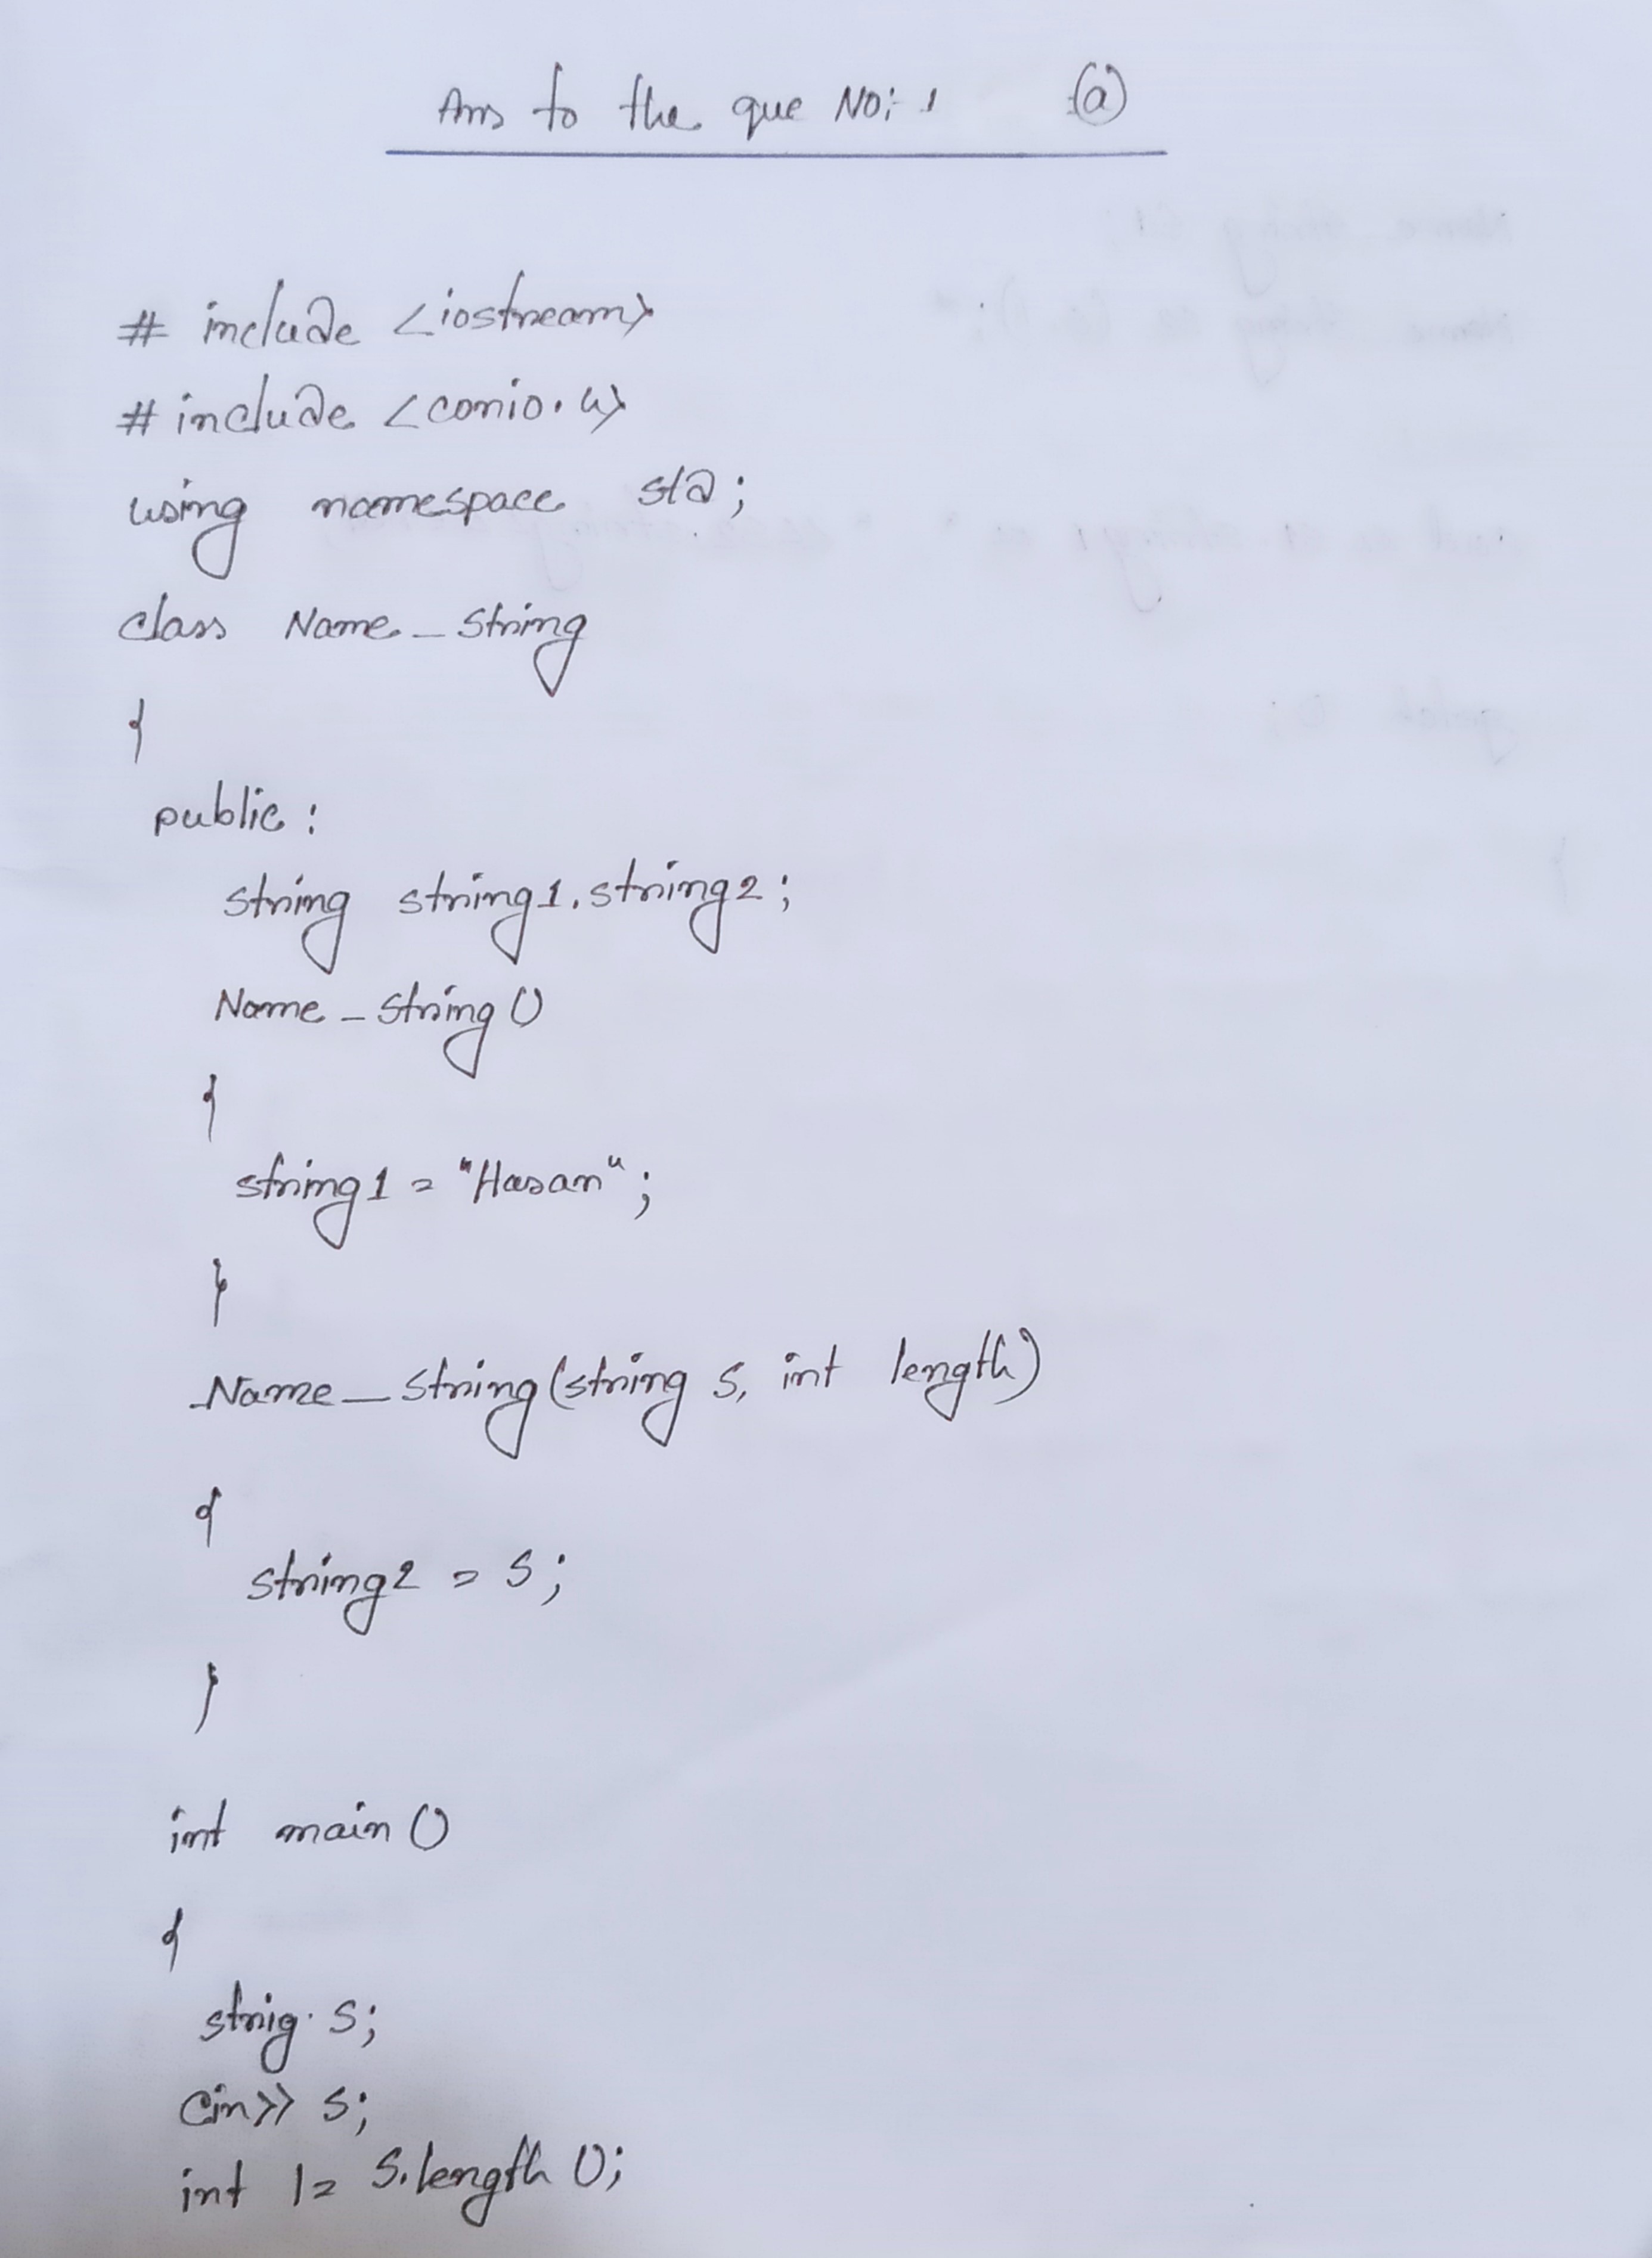 Ans to the que NO:- 1 (a)
# include <iostream>
# include <conio.h>
using namespace std;
class Name_String
{
public:
string string1, string2;
Name_String()
{
string1 = "Hasan";
}
Name_String(string s, int length)
{
string2 = s;
}
int main()
{
strig s;
Cin>> s;
int l= s.length();